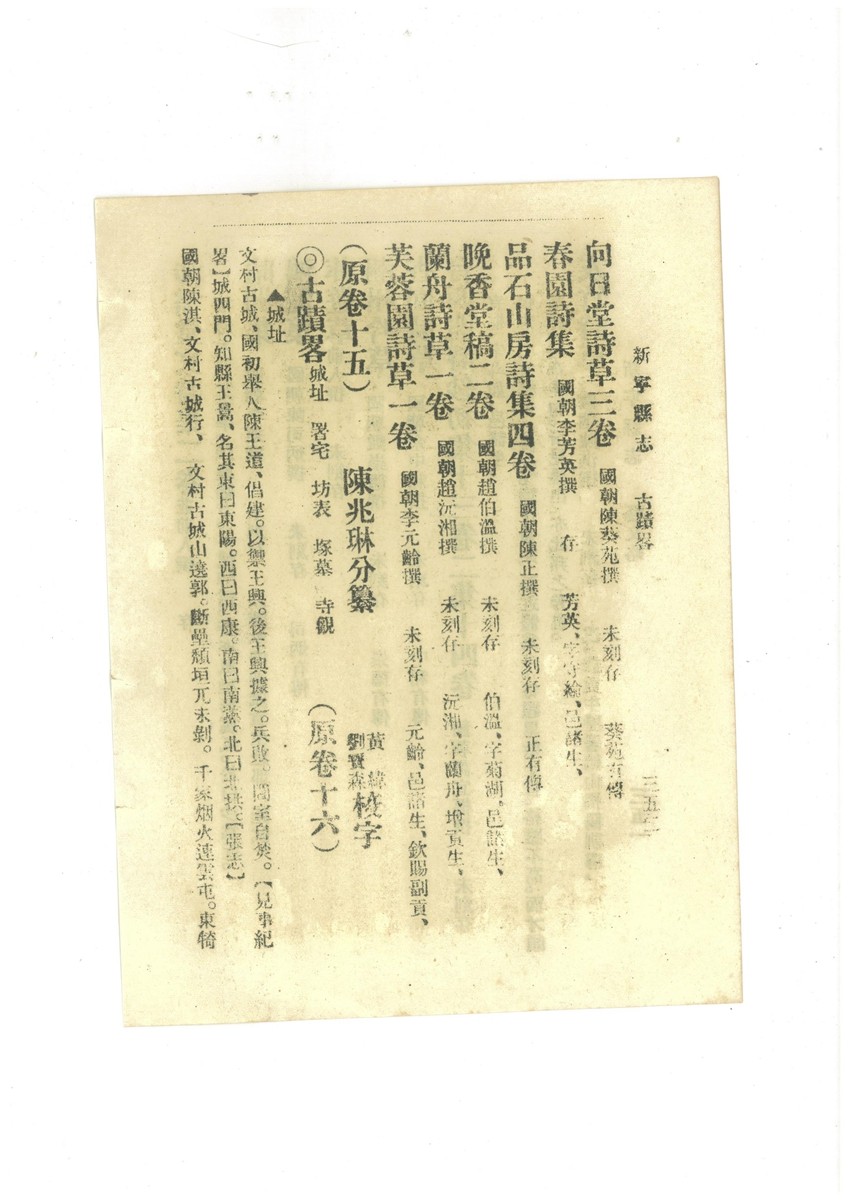 新寧縣志　古蹟畧　三五二
向日堂詩草三卷　國朝陳葵苑撰　未刻存　葵苑有傳
春園詩集　國朝李芳英撰　存　芳英、字守綸、邑諸生、
品石山房詩集四卷　國朝陳正撰　未刻存　正有傳
晚香堂稿二卷　國朝趙伯溫撰　未刻存　伯溫、字菊湖。邑諸生、
蘭舟詩草一卷　國朝趙沅湘撰　未刻存　沅湘、字蘭舟、增貢生、
芙蓉園詩草一卷　國朝李元齡撰　未刻存　元齡、邑諸生、欽賜副貢、
（原卷十五）　陳兆琳分纂　黃緯　劉寶森　校字
◎古蹟畧　城址　署宅　坊表　塚墓　寺觀　（原卷十六）
▲城址
文村古城、國初舉人陳王道、倡建。以禦王興。後王興據之。兵敗。闔室自焚。【見事紀
畧】城四門。知縣王暠、名其東曰東陽。西曰西康。南曰南薰。北曰北拱。【張志】
國朝陳淇、文村古城行、　文村古城山遶郭。斷壘頹垣兀未剝。千家烟火連雲屯。東犄